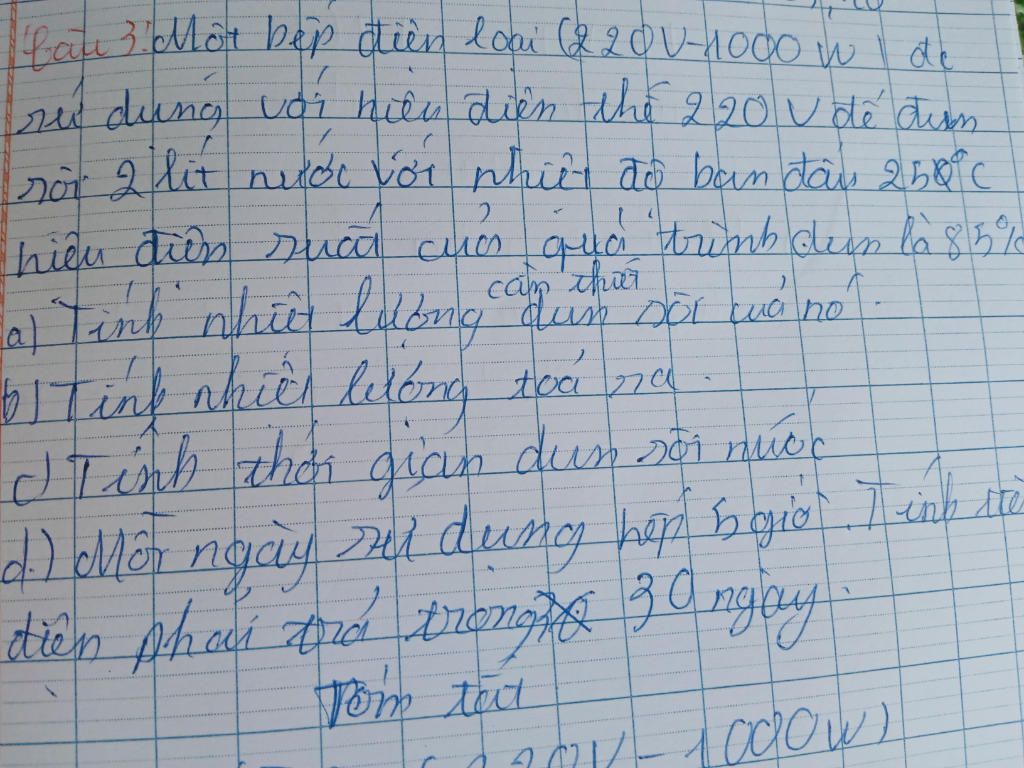 Câu 3: Một bếp điện loại (220V-1000W) đc
sử dụng với hiệu điện thế 220V để đun
sôi 2 lít nước với nhiệt độ ban đầu 25°C
hiệu điện suất của quá trình đun là 85%
cần thiết
a) Tính nhiệt lượng đun sôi của nó.
b) Tính nhiệt lượng toả ra.
c) Tính thời gian đun sôi nước
d.) Một ngày sử dụng bếp 5 giờ. Tính
điện phải trả trong 30 ngày.
Tóm tắt
220V-1000W)